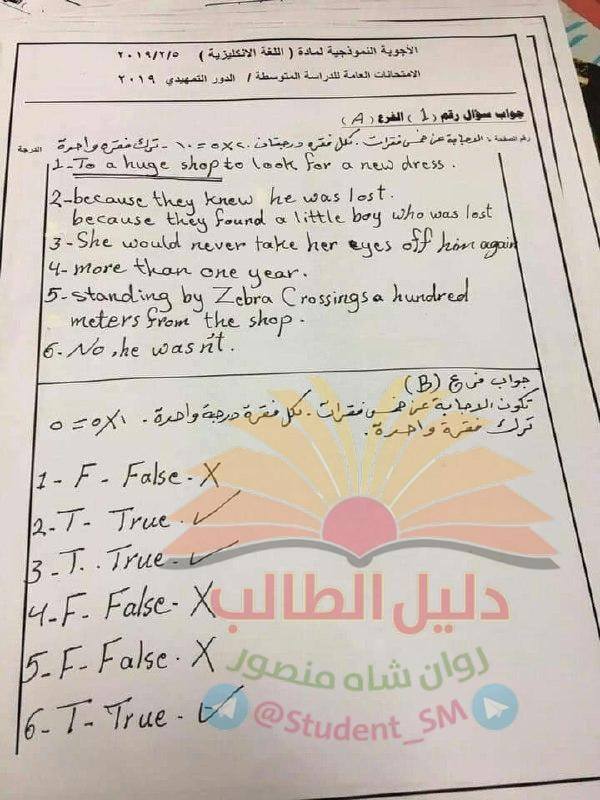 الأجوبة النموذجية لمادة ( اللغة الانكليزية ) ٢٠١٩/٢/٥
الامتحانات العامة للدراسة المتوسطة / الدور التمهيدي ٢٠١٩
جواب سؤال رقم ( 1 ) الفرع ( A )
رقم الصفحة : الاجابة عن خمس فقرات . لكل فقرة درجتان . ٢×٥ = ١٠ - ترك فقرة واحدة الدرجة
1- To a huge shop to look for a new dress .
2- because they knew he was lost.
because they found a little boy who was lost
3 - She would never take her eyes off him again
4- more than one year.
5- standing by Zebra Crossings a hundred
meters from the shop .
6- No, he wasn't .
جواب فرع (B)
تكون الاجابة عن خمس فقرات . لكل فقرة درجة واحدة . ١×٥ = ٥
ترك فقرة واحدة .
1- F - False - X
2- T - True - ✓
3 - T . True - ✓
4 - F - False - X
5- F - False . X
6- T - True - ✓
دليل الطالب
روان شاه منصور
@Student_SM